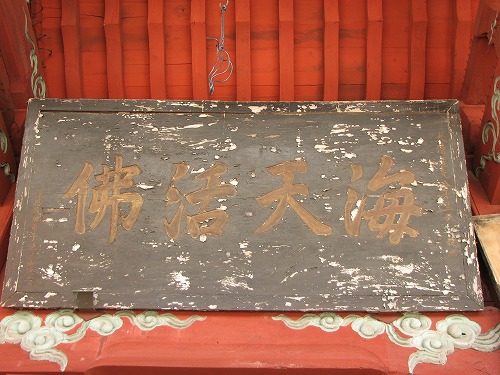 海天活佛